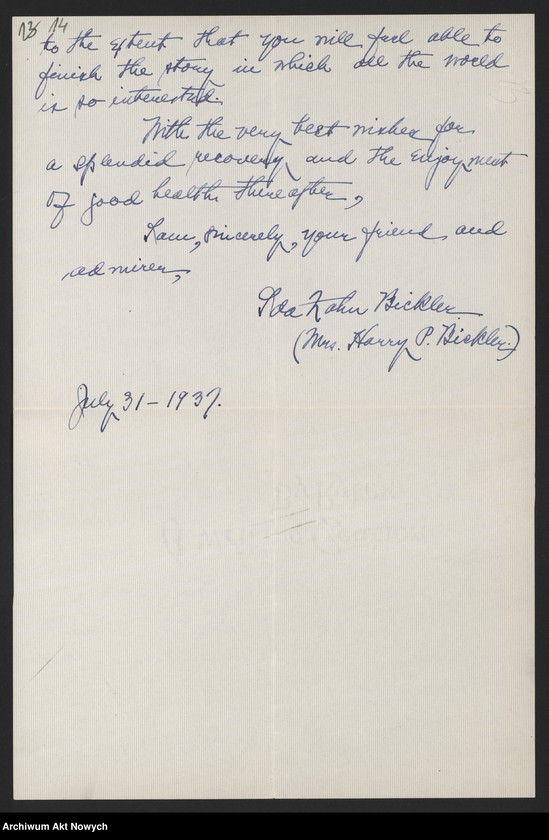 13 14
to the extent that you will feel able to
finish the story in which all the world
is so interested.
With the very best wishes for
a splendid recovery and the enjoyment
of good health thereafter,
I am, sincerely, your friend and
admirer,
Ida Zahn Bickler
(Mrs. Harry P. Bickler.)
July 31 - 1937.
Archiwum Akt Nowych